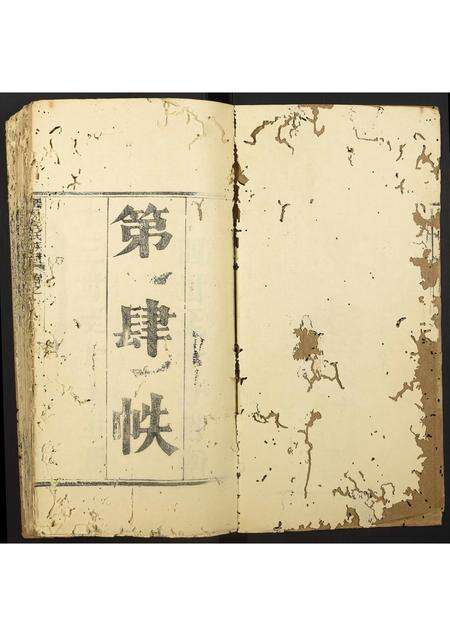 第肆帙